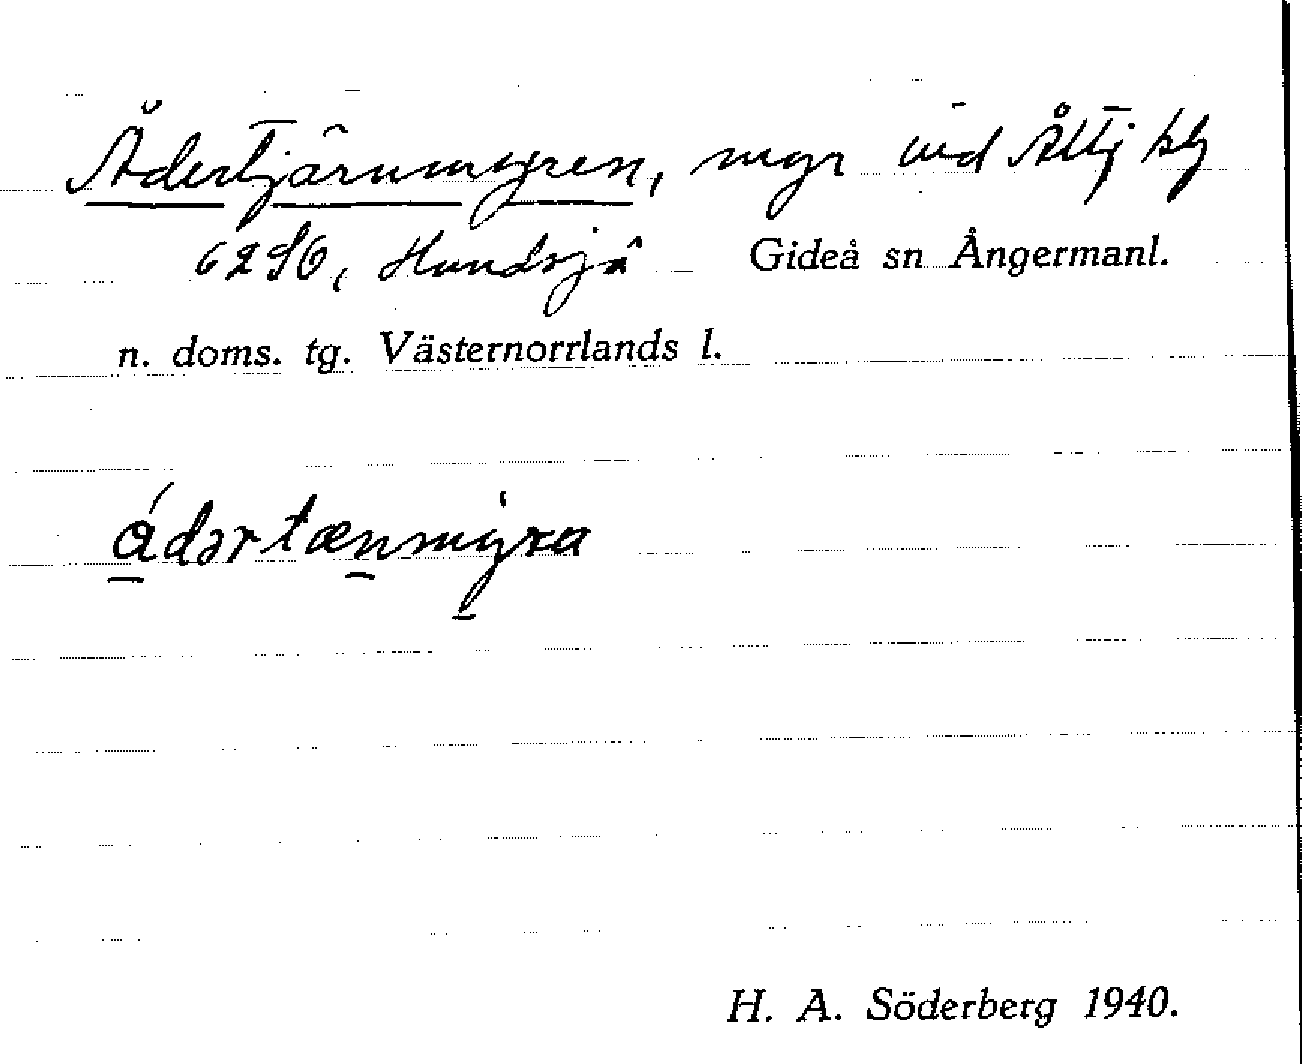 Ådertjärnmyren, myr vid Åltj kbl
6256, Hundsjö Gideå sn Ångermanl.
n. doms. tg. Västernorrlands l.
ådərtænmyra
H. A. Söderberg 1940.